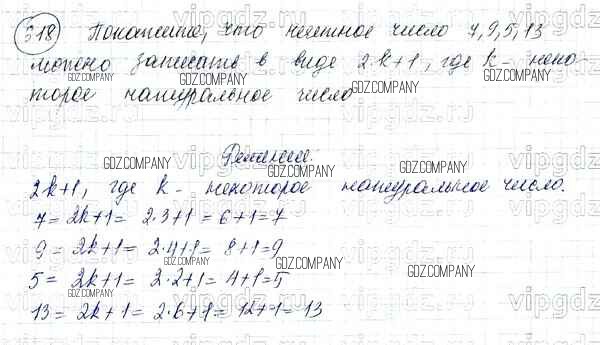 318 Покажите, что нечетное число 7, 9, 5, 13
можно записать в виде 2k+1, где k - неко-
торое натуральное число
Решение.
2k+1, где k - некоторое натуральное число.
7 = 2k+1 = 2·3+1 = 6+1=7
9 = 2k+1 = 2·4+1 = 8+1=9
5 = 2k+1 = 2·2+1 = 4+1=5
13 = 2k+1 = 2·6+1 = 12+1 = 13
GDZ.COMPANY
vipgdz.ru